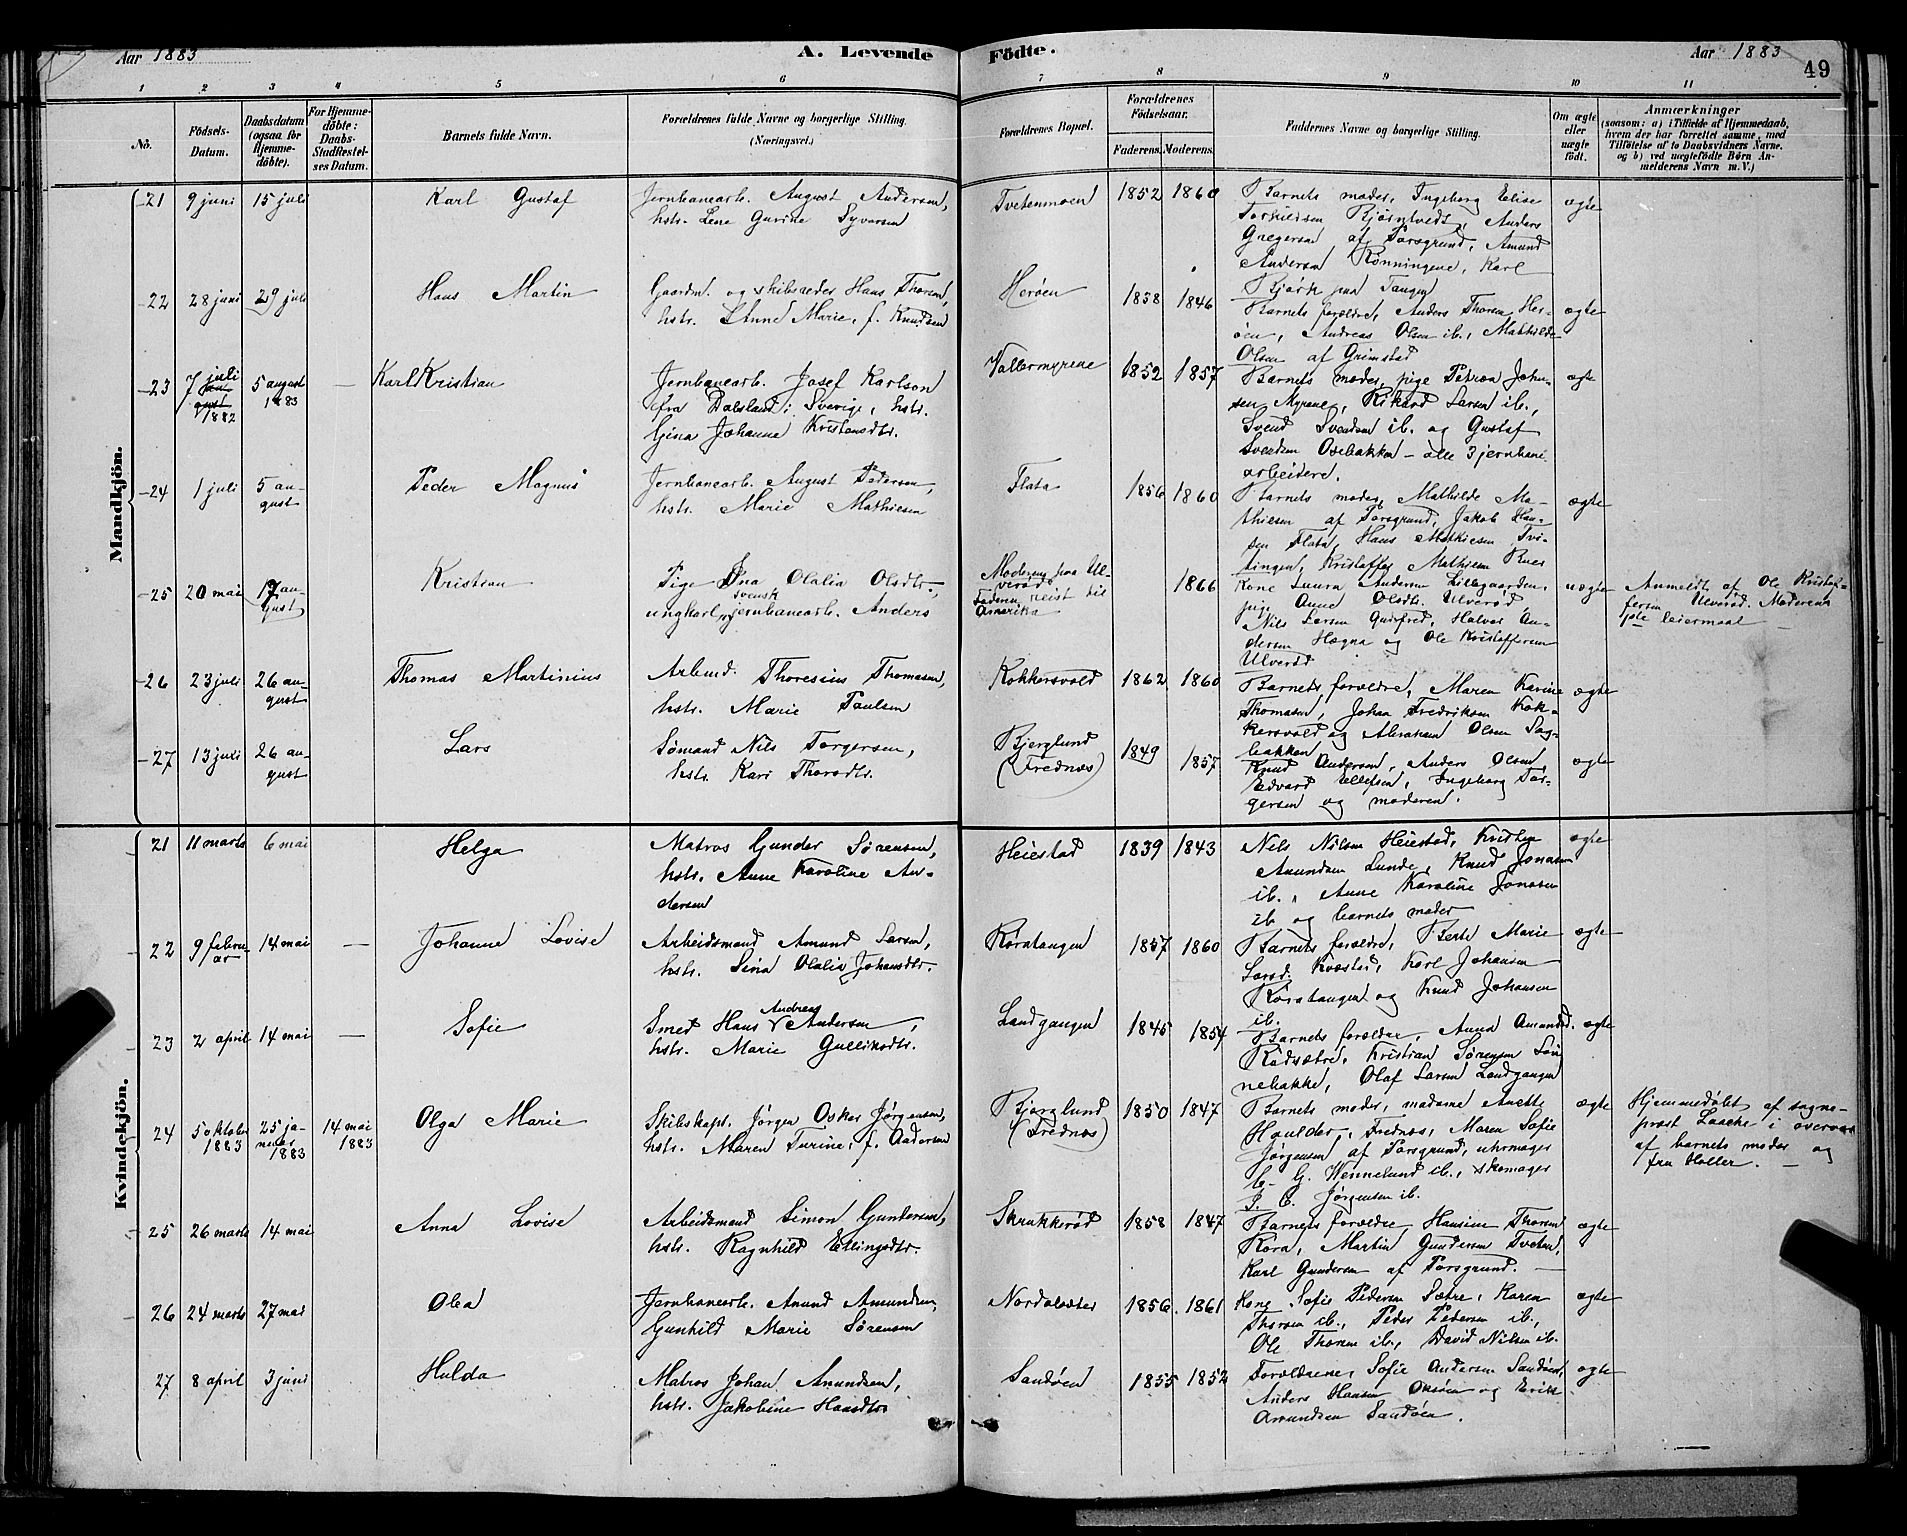 Aar 1883
A. Levende Födte.
Aar 1883
49
1 2 3 4 5 6 7 8 9 10 11
No.
Födsels-Datum.
Daabsdatum (ogsaa for Hjemme-döbte).
For Hjemme-döbte: Daabs-Stadfestel-ses Datum.
Barnets fulde Navn.
Forældrenes fulde Navne og borgerlige Stilling. (Næringsvei.)
Forældrenes Bopæl.
Forældrenes Födselsaar.
Faderens. Moderens.
Faddernes Navne og borgerlige Stilling.
Om ægte eller uægte födt.
Anmærkninger
(saasom: a) i Tilfælde af Hjemmedaab, hvem der har forrettet samme, med Tilföielse af to Daabsvidners Navne, og b) ved uægtefödte Börn Anmelderens Navn m. V.)
Mandkjön.
21 9 juni 15 juli Karl Gustaf
Jernbanearb. August Andersen,
hstr. Lene Gurine Syversen
Tvetenmoen 1852 1860
Barnets moder, Ingeborg Elise
Torkildsen Bjørntvedt, Anders
Gregersen af Porsgrund, Amund
Andersen Rønningene, Karl
Bjørk paa Tangen
ægte
22 28 juni 29 juli Hans Martin
Gaardm. og skibsreder Hans Thorsen,
hstr. Anne Marie, f. Knudsen
Herøen 1858 1846
Barnets forældre, Anders Thorsen Her-
øen, Andreas Olsen ib., Mathilde
Olsen af Grimstad
ægte
23 7 juli 1882 5 august 1883 — Karl Kristian
Jernbanearb. Josef Karlson
fra Dalsland i Sverige, hstr.
Gina Johanne Kristensdtr.
Vallermyrene 1852 1857
Barnets moder, pige Petrea Johan-
sen Myrene, Rikard Larsen ib.,
Svend Svendsen ib. og Gustaf
Svendsen Osebakken – alle 3 jernbane-
arbeidere.
ægte
24 1 juli 5 au-
gust
Peder Magnus
Jernbanearb. August Pedersen,
hstr. Marie Mathisen
Flata 1856 1860
Barnets moder, Mathilde Ma-
thisen af Porsgrund, Jakob Han-
sen Flata, Hans Mathisen Tvi-
tingen, Kristoffer Mathisen
ægte
25 20 mai 19 au-
gust
Kristian
Pige Ina Olalia Olsdtr.,
ungkarl, svensk jernbanearb. Anders
Moderens paa Ul-
verød
Faderen reist til
Amerika
1866
Kone Laura Andersen Lillegaarden,
pige Anne Olsdtr. Ulverød,
Nils Larsen Gunfred, Halvor An-
dersen Hægna og Ole Kristoffersen
Ulverød
uægte
Anmeldt af Ole Kristof-
fersen Ulverød. Moderens
1ste leiermaal —
26 23 juli 26 au-
gust
Thomas Martinius
Arbmd. Thoresius Thomasen,
hstr. Marie Paulsen
Kokkersvold 1862 1860
Barnets forældre, Maren Karine
Thomasen, Johan Fredriksen Kok-
kersvold og Abraham Olsen Sag-
bakken
ægte
27 13 juli 26 au-
gust
Lars
Sømand Nils Torgersen,
hstr. Kari Thorsdtr.
Bjerglund
(Frednæs)
1849 1857
Knud Andersen, Anders Olsen,
Edvard Ellefsen, Ingeborg Tor-
gersen og moderen.
ægte
Kvindekjön.
21 11 marts 6 mai Helga
Matros Gunder Sørensen,
hstr. Anne Karoline An-
dersen
Heiestad 1839 1843
Nils Nilsen Heiestad, Kristen
Amundsen Lunde, Knud Jonasen
ib., Anne Karoline Jonasen
ib og barnets moder
ægte
22 9 febru-
ar
14 mai — Johanne Lovise
Arbeidsmand Amund Larsen,
hstr. Lina Olalia Johansdtr.
Røratangen 1857 1860
Barnets forældre, Berte Marie
Larsd. Kvæstad, Karl Johansen
Røratangen og Knud Johansen
ib.
ægte
23 2 april 14 mai — Sofie
Smed Hans Andreas Andersen,
hstr. Marie Gulliksdtr.
Landgangen 1845 1854
Barnets forældre, Anna Amundsd.
Rødsætre, Kristian Sørensen Løn
nebakke, Olaf Larsen Landgangen
ægte
24 5 oktober 1883 25 ja-
nuar 1883
14 mai 1883
Olga Marie
Skibskapt. Jørgen Oskar Jørgensen,
hstr. Maren Turine, f. Andersen
Bjerglund
(Frednæs)
1850 1847
Barnets moder, madame Anette
Houlder, Frednæs, Maren Sofie
Jørgensen af Porsgrund, uhrmager
C. G. Wennelund ib., skomager
P. C. Jørgensen ib.
ægte
Hjemmedøbt af sogne-
prest Laache i overvær
af barnets moder og
fru Møller. —
25 26 marts 14 mai Anna Lovise
Arbeidsmand Simon Gundersen,
hstr. Ragnhild Ellingsdtr.
Skrukkerød 1858 1847
Barnets forældre, Hansine Thorsen
Røra, Martin Gundersen Tveten,
Karl Gundersen af Porsgrund. —
ægte
26 24 marts 27 mai Olea
Jernbanearb. Anund Amundsen,
Gunhild Marie Sørensen
Nordalsæter 1856. 1861
Kone Sofie Pedersen Sætre, Karen
Thorsen ib., Peder Pedersen ib.,
Ole Thorsen ib., David Nilsen ib.
ægte
27 8 april 3 juni Hulda
Matros Johan Amundsen,
hstr. Jakobine Hansdtr
Sandøen 1855 1852
Forældrene, Sofie Andersen Sandøen,
Anders Hansen Oksøen og Erik
Amundsen Sandøen.
ægte